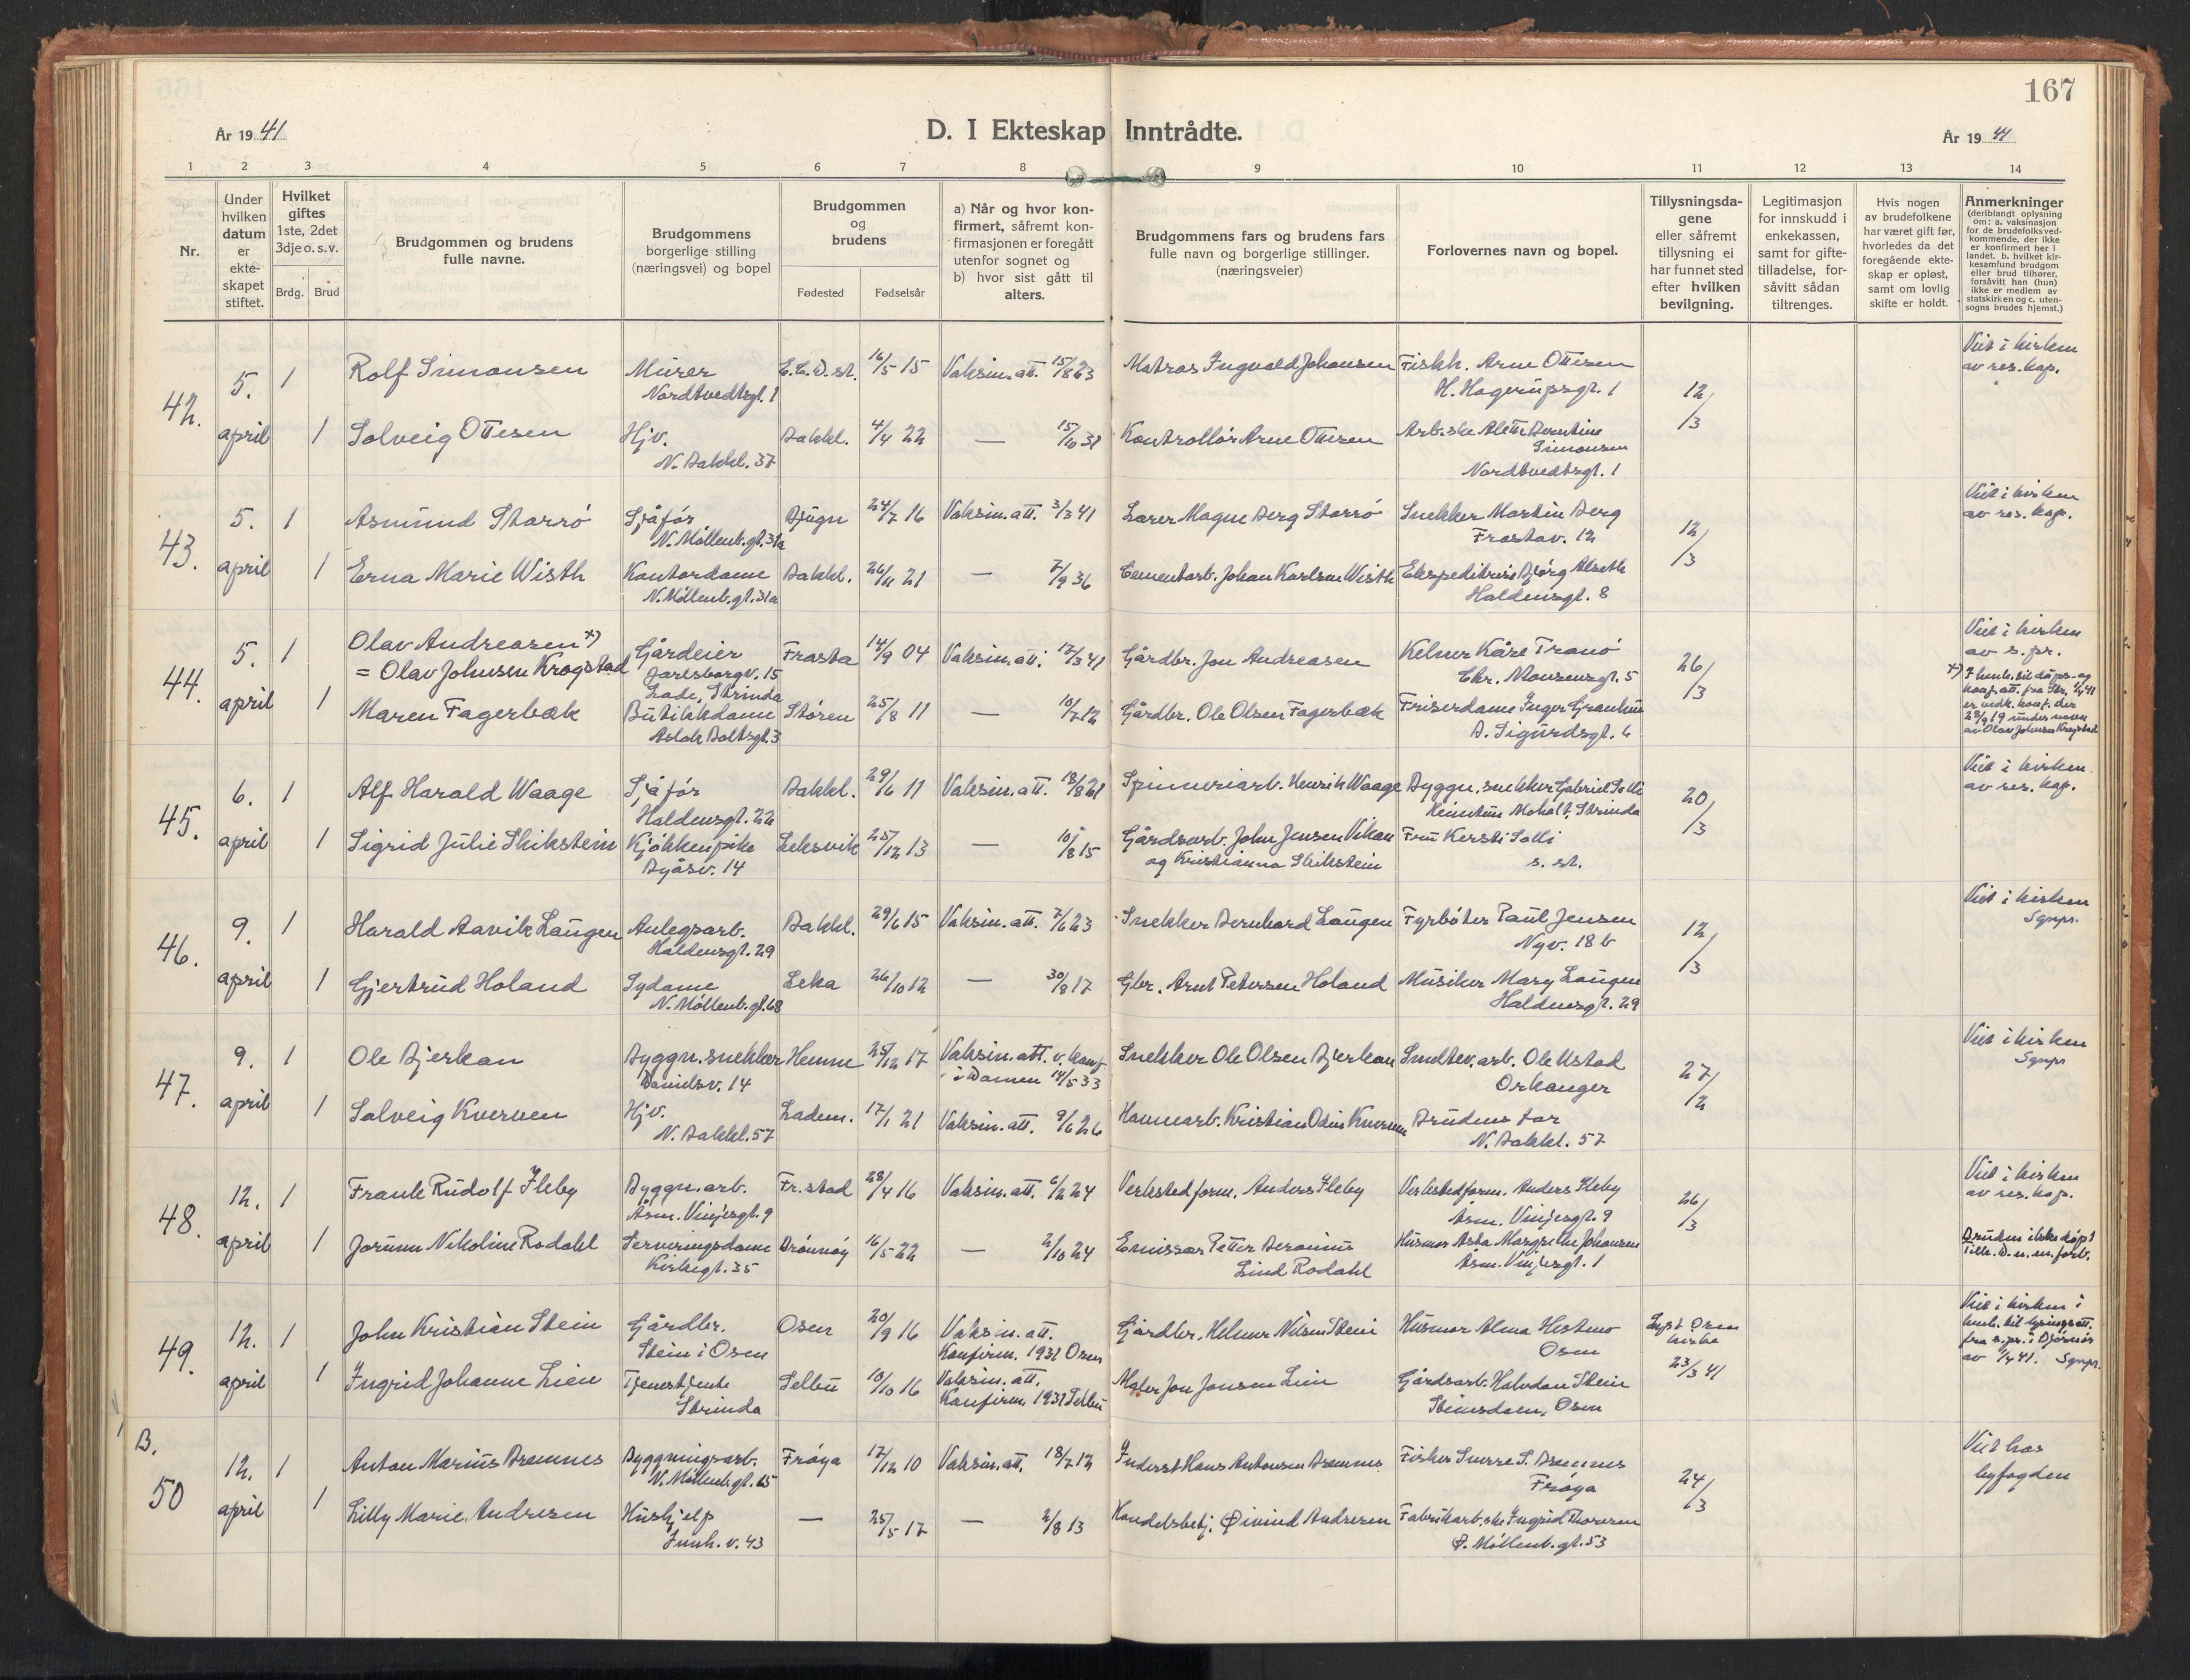 167
År 19 41
D. I Ekteskap Inntrådte.
År 19 41
1 2 3 4 5 6 7 8 9 10 11 12 13 14
Nr.
Under hvilken datum er ekte-skapet stiftet.
Hvilket giftes 1ste, 2det 3dje o. s. v.
Brdg. Brud
Brudgommen og brudens fulle navne.
Brudgommens borgerlige stilling (næringsvei) og bopel
Brudgommen og brudens
Fødested Fødselsår
a) Når og hvor kon-firmert, såfremt kon-firmasjonen er foregått utenfor sognet og b) hvor sist gått til alters.
Brudgommens fars og brudens fars fulle navn og borgerlige stillinger. (næringsveier)
Forlovernes navn og bopel.
Tillysningsda-gene eller såfremt tillysning ei har funnet sted efter hvilken bevilgning.
Legitimasjon for innskudd i enkekassen, samt for gifte-tilladelse, for-såvitt sådan tiltrenges.
Hvis nogen av brudefolkene har været gift før, hvorledes da det foregående ekte-skap er opløst, samt om lovlig skifte er holdt.
Anmerkninger (deriblandt oplysning om: a. vaksinasjon for de brudefolksved-kommende, der ikke er konfirmert her i landet. b. hvilket kir-kesamfund brudgom eller brud tilhører, forsåvitt han (hun) ikke er medlem av statskirken og c. uten-sogns brudes hjemst.)
42. 5. april
1 Rolf Simonsen Murer E.C.D.st. 16/5 15 Vaksin.att. 15/8 23 Matros Ingvald Johansen Fiskh. Arne Ottesen 12/3 Viet i kirken
Nordtvedtsgt. 1 H. Hagerupsgt. 1 av res. kap.
1 Solveig Ottesen Hjv. Bakkl. 4/4 22 — Kontrollør Arne Ottesen Arb.ske Alette Berntine
N. Bakkl. 37 Simonsen
Nordtvedtsgt. 1
43. 5. april
1 Asmund Storrø Sjåfør Bjugn 24/7 16 Vaksin.att. 3/3 41 Lærer Magne Berg Storrø Snekker Martin Berg 12/3 Viet i kirken
N. Møllenb.gt. 31a Frostav. 12 av res. kap.
1 Erna Marie Wisth Kontordame Bakkl. 26/11 21 — 7/9 36 Cementarb. Johan Karlsen Wisth Ekspeditrise Bjørg Alseth
N. Møllenb.gt. 31a Haldensgt. 8
44. 5. april
1 Olav Andreasen +) Gårdeier Frosta 14/9 04 Vaksin.att. 17/3 41 Gårdbr. Jon Andreasen Kelner Kåre Tranø 26/3 Viet i kirken
= Olav Johnsen Krogstad Jarlsborgv. 15 Chr. Monsensgt. 5 av s. pr.
Lade, Strinda
1 Maren Fagerbæk Butikkdame Støren 25/8 11 — 10/7 12 Gårdbr. Ole Olsen Fagerbæk Friserdame Inger
Aslak Boltsgt. 3 B. Sigurdsgt. 6
+) I henh. til dåps- og
konf. att. fra Str. 1/4 41
er vedk. konf. der
28/9 19 under navn
av Olav Johnsen Krogstad
45. 6. april
1 Alf Harald Waage Sjåfør Bakkl. 29/6 11 Vaksin.att. Spinneriarb. Henrik Waage Byggn. snekker Gabriel Solli 20/3 Viet i kirken
Haldensgt. 22 Heimtun Moholt, Strinda av res. kap.
1 Sigrid Julie Skikstein Kjøkkenpike Leksvik 25/12 13 — 10/8 15 Gårdsarb. John Jensen Vikan Fru Kersti Solli
Byåsv. 14 og Kristianna Skikstein s. st.
46. 9. april
1 Harald Aavik Laugen Anlegsarb. Bakkl. 29/6 15 Vaksin.att. 7/6 23 Snekker Bernhard Laugen Fyrbøter Paul Jensen 12/3 Viet i kirken
Haldensgt. 29 Nyv. 18 b Sgnpr.
1 Gjertrud Holand Sydame Leka 26/10 12 — 30/8 17 Gbr. Arnt Petersen Holand Musiker Mary Laugen
N. Møllenb.gt. 68 Haldensgt. 29
47. 9. april
1 Ole Bjerkan Byggn. snekker Hemne 25/12 17 Vaksin.att. v. konf. Snekker Ole Olsen Bjerkan Smeltev. arb. Ole Ustad 27/2 Viet i kirken
Danielsv. 14 i Domen 14/5 33 Orkanger Sgnpr
1 Solveig Kverven Hjv. Ladem. 17/1 21 Vaksin.att. 9/6 26 Havnearb. Kristian Odin Kverven Brudens far
N. Bakkl. 57 N. Bakkl. 57
48. 12. april
1 Frank Rudolf Ileby Byggn. arb. Fr.stad 28/4 16 Vaksin.att. 6/2 24 Verkstedform. Anders Ileby Verkstedform. Anders Ileby 26/3 Viet i kirken
Åsm. Vinjesgt. 9 Åsm. Vinjesgt. 9 av res. kap.
1 Jorunn Nikoline Rodahl Serveringsdame Brønnøy 16/5 22 — 2/10 24 Emissær Petter Beronius Husmor Asta Margrethe Johansen Bruden ikke døpt
Kirkegt. 35 Lind Rodahl Åsm. Vinjesgt. 1 Tilh. D. n. m. forb.
49. 12. april
1 John Kristian Stein Gårdbr. Osen 20/9 16 Vaksin.att. Gårdbr. Helmer Nilsen Stein Husmor Alma Hestmo Lyst Osen Viet i kirken i
Stein i Osen Konfirm. 1931 Osen Osen kirke henh. til lysingsatt.
23/3 41 fra s.pr. i Bjørnør
av 1/4 41. Sgnpr.
1 Ingrid Johanne Lien Tjenestjente Selbu 10/10 16 Vaksin.att. Maler Jon Jonsen Lien Gårdsarb. Halvdan Stein
Strinda Konfirm. 1931 Selbu Steinsdalen, Osen
B.
50 12. april
1 Anton Marius Dremnes Byggningsarb. Frøya 17/12 10 Vaksin.att. 18/7 12 Inderst Hans Antonsen Dremnes Fisker Sverre S. Dremnes 24/3 Viet hos
N. Møllenb.gt. 65 Frøya byfogden
1 Lilly Marie Andresen Hushjelp — 25/5 17 — 2/8 13 Handelsbetj. Øivind Andresen Fabrikarb.ske Ingrid Thoresen
Innh. v. 43 Ø. Møllenb. gt. 53